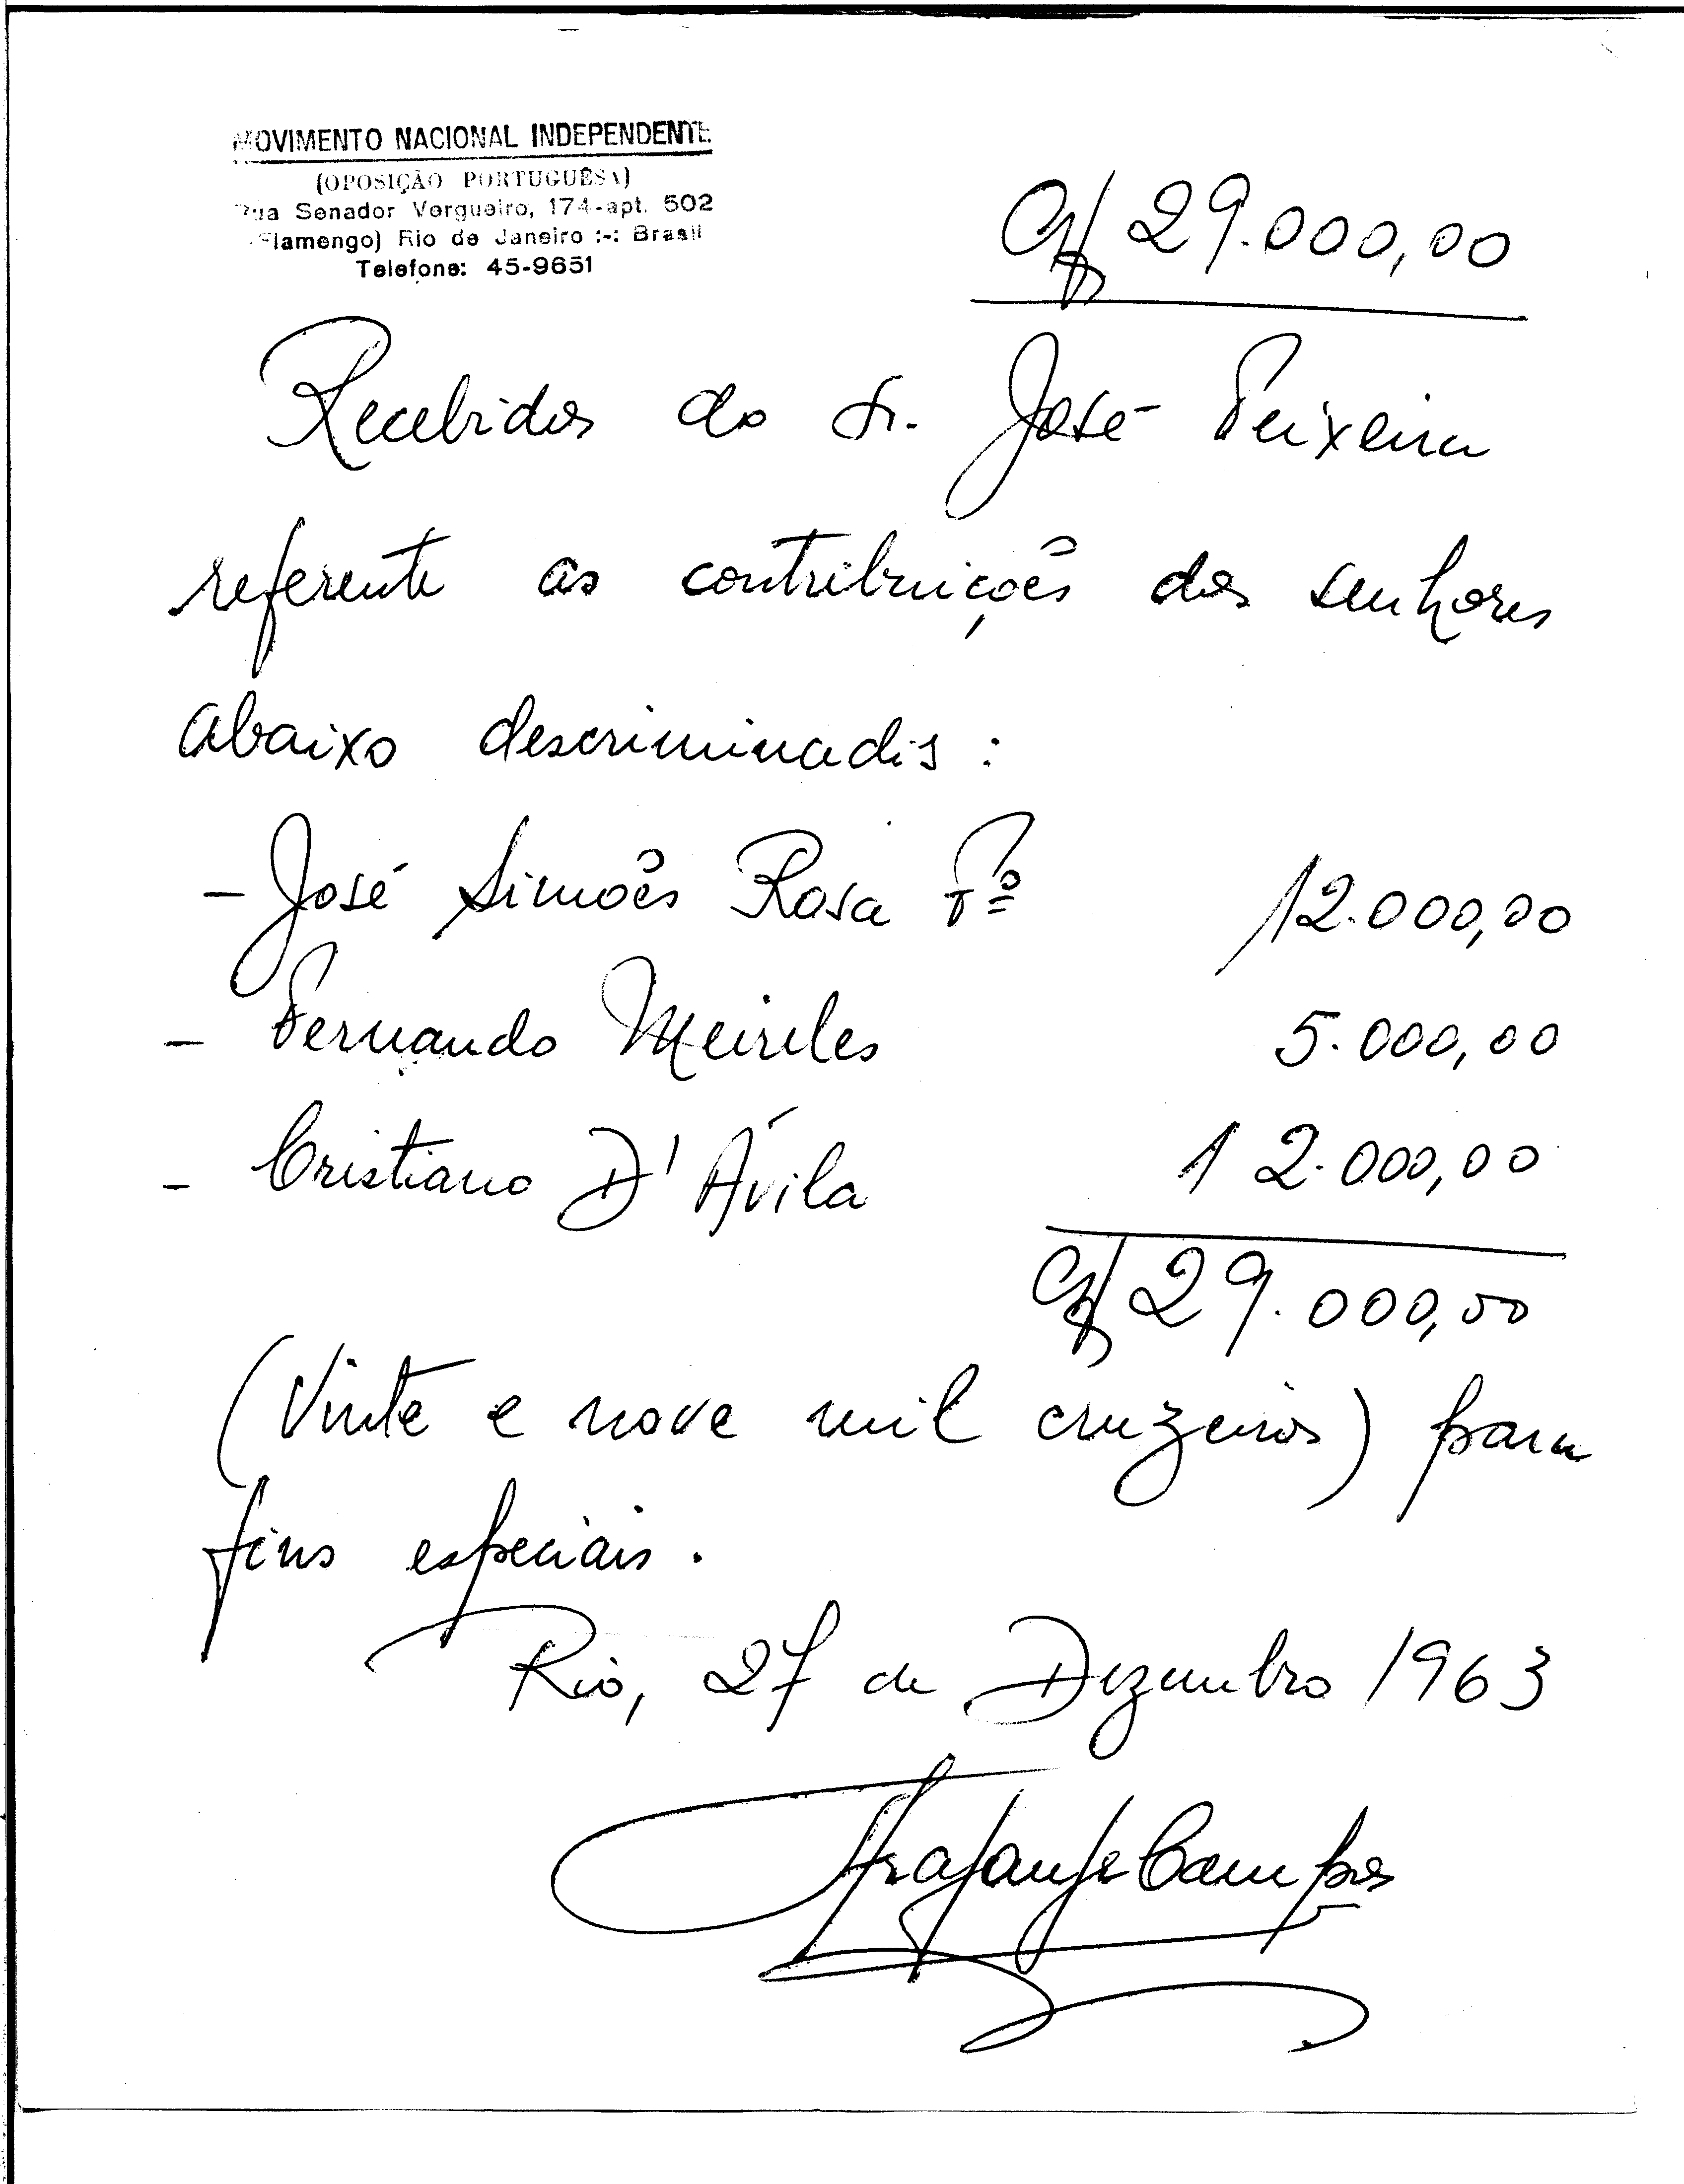 MOVIMENTO NACIONAL INDEPENDENTE
(OPOSIÇÃO PORTUGUÊSA)
Rua Senador Vergueiro, 174-apt. 502
(Flamengo) Rio de Janeiro :-: Brasil
Telefone: 45-9651
Cr$ 29.000,00
Recebidos do Sr. José Teixeira
referente as contribuições dos senhores
abaixo descriminados :
- José Simões Rosa Fº 12.000,00
- Fernando Meireles 5.000,00
- Cristiano D'Ávila 12.000,00
Cr$ 29.000,00
(Vinte e nove mil cruzeiros) para
fins especiais.
Rio, 27 de Dezembro 1963
Arajanje Campos